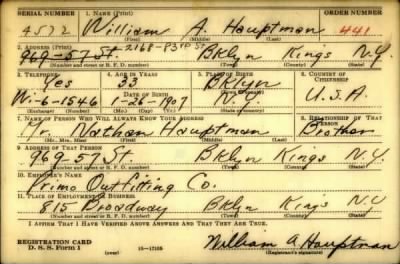 SERIAL NUMBER 1. NAME (Print) ORDER NUMBER
4572 William A. Hauptman 441
(First) (Middle) (Last)
2. ADDRESS (Print) 2168-83rd St
969-57 St. Bklyn Kings N.Y.
(Number and street or R. F. D. number) (Town) (County) (State)
3. TELEPHONE 4. AGE IN YEARS 5. PLACE OF BIRTH 6. COUNTRY OF CITIZENSHIP
Yes 33 Bklyn
DATE OF BIRTH
Wi-6-1546 1-26-1907 N.Y. U.S.A.
(Exchange) (Number) (Mo.) (Day) (Yr.) (State or country)
7. NAME OF PERSON WHO WILL ALWAYS KNOW YOUR ADDRESS 8. RELATIONSHIP OF THAT PERSON
Mr. Nathan Hauptman Brother
(Mr., Mrs., Miss) (First) (Middle) (Last)
9. ADDRESS OF THAT PERSON
969 57 St. Bklyn Kings N.Y.
(Number and street or R. F. D. number) (Town) (County) (State)
10. EMPLOYER'S NAME
Primo Outfitting Co.
11. PLACE OF EMPLOYMENT OR BUSINESS
815 Broadway Bklyn Kings N.Y
(Number and street or R. F. D. number) (Town) (County) (State)
I AFFIRM THAT I HAVE VERIFIED ABOVE ANSWERS AND THAT THEY ARE TRUE.
REGISTRATION CARD
D. S. S. Form 1 (over) 16-17105 William A Hauptman
(Registrant's signature)